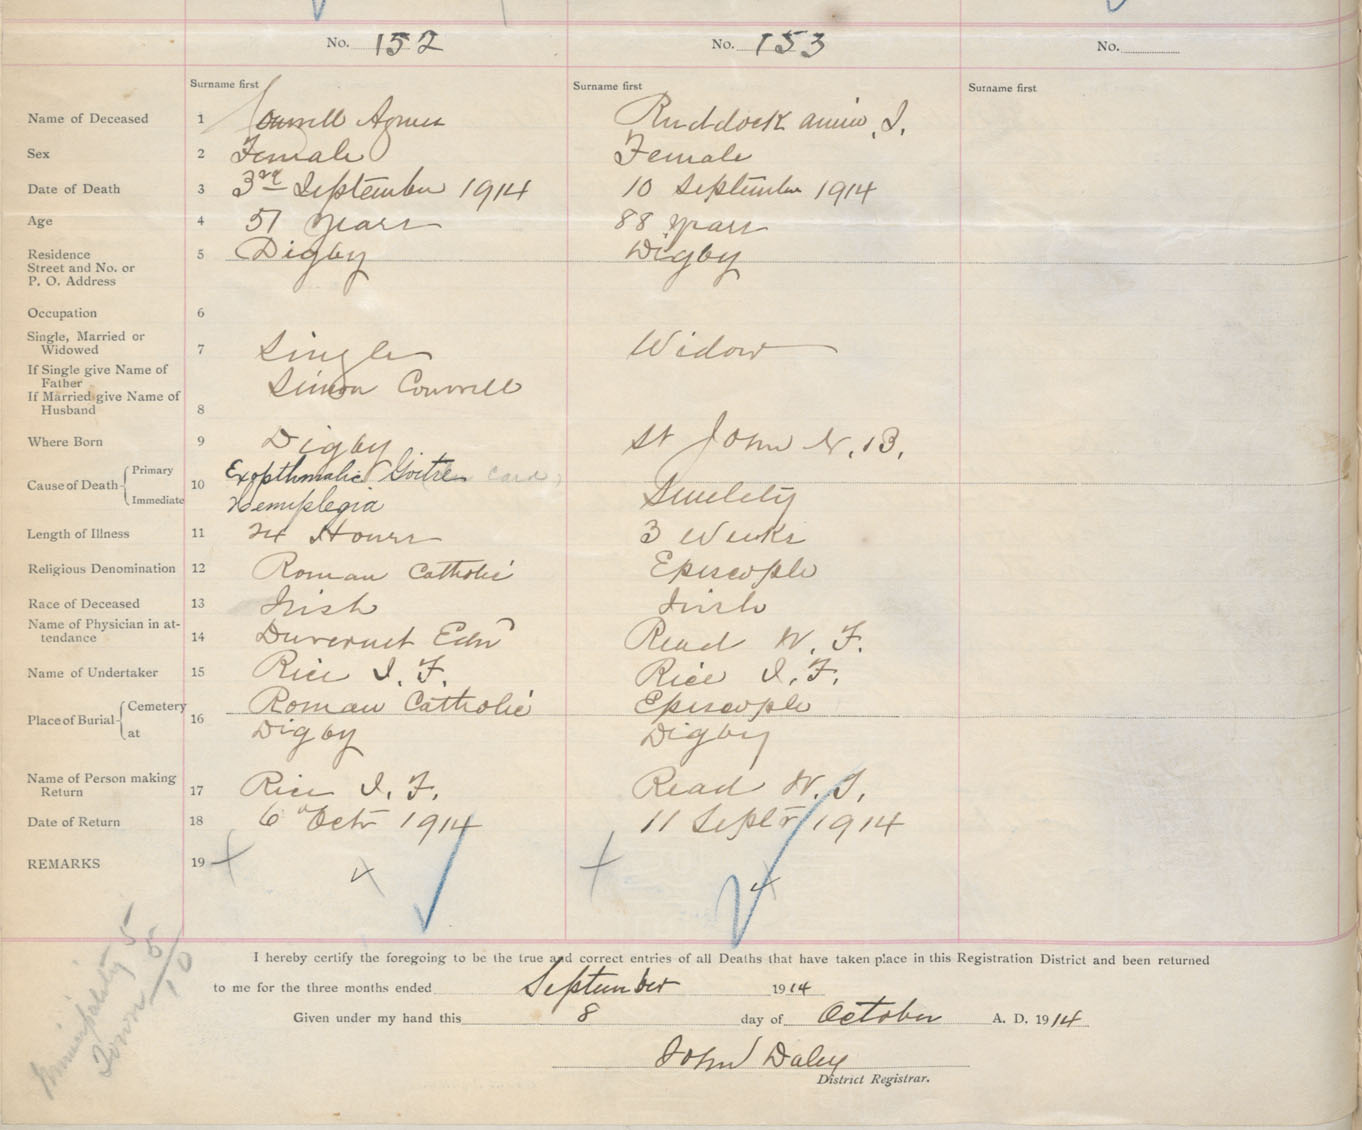 No. 152 No. 153 No.
Surname first Surname first Surname first
Name of Deceased 1 Connell Agnes Ruddock Annie. J.
Sex 2 Female Female
Date of Death 3 3rd September 1914 10 September 1914
Age 4 57 years 88 years
Residence 5 Digby Digby
Street and No. or
P. O. Address
Occupation 6
Single, Married or
Widowed 7 Single Widow
If Single give Name of
Father Simon Connell
If Married give Name of
Husband 8
Where Born 9 Digby St John N. B.
Cause of Death Primary 10 Exopthmalic Goitre card)
Immediate Hemiplegia Senility
Length of Illness 11 24 Hours 3 Weeks
Religious Denomination 12 Roman Catholic Episcople
Race of Deceased 13 Irish Irish
Name of Physician in at-
tendance 14 Duvernet Edn Read W. F.
Name of Undertaker 15 Rice I. F. Rice I. F.
Place of Burial Cemetery 16 Roman Catholic Episcople
at Digby Digby
Name of Person making
Return 17 Rice I. F. Read W. F.
Date of Return 18 6 Octr 1914 11 Septr 1914
REMARKS 19
Municipality 5
Town 5
10
I hereby certify the foregoing to be the true and correct entries of all Deaths that have taken place in this Registration District and been returned
to me for the three months ended September 1914
Given under my hand this 8 day of October A. D. 1914
John Daley
District Registrar.